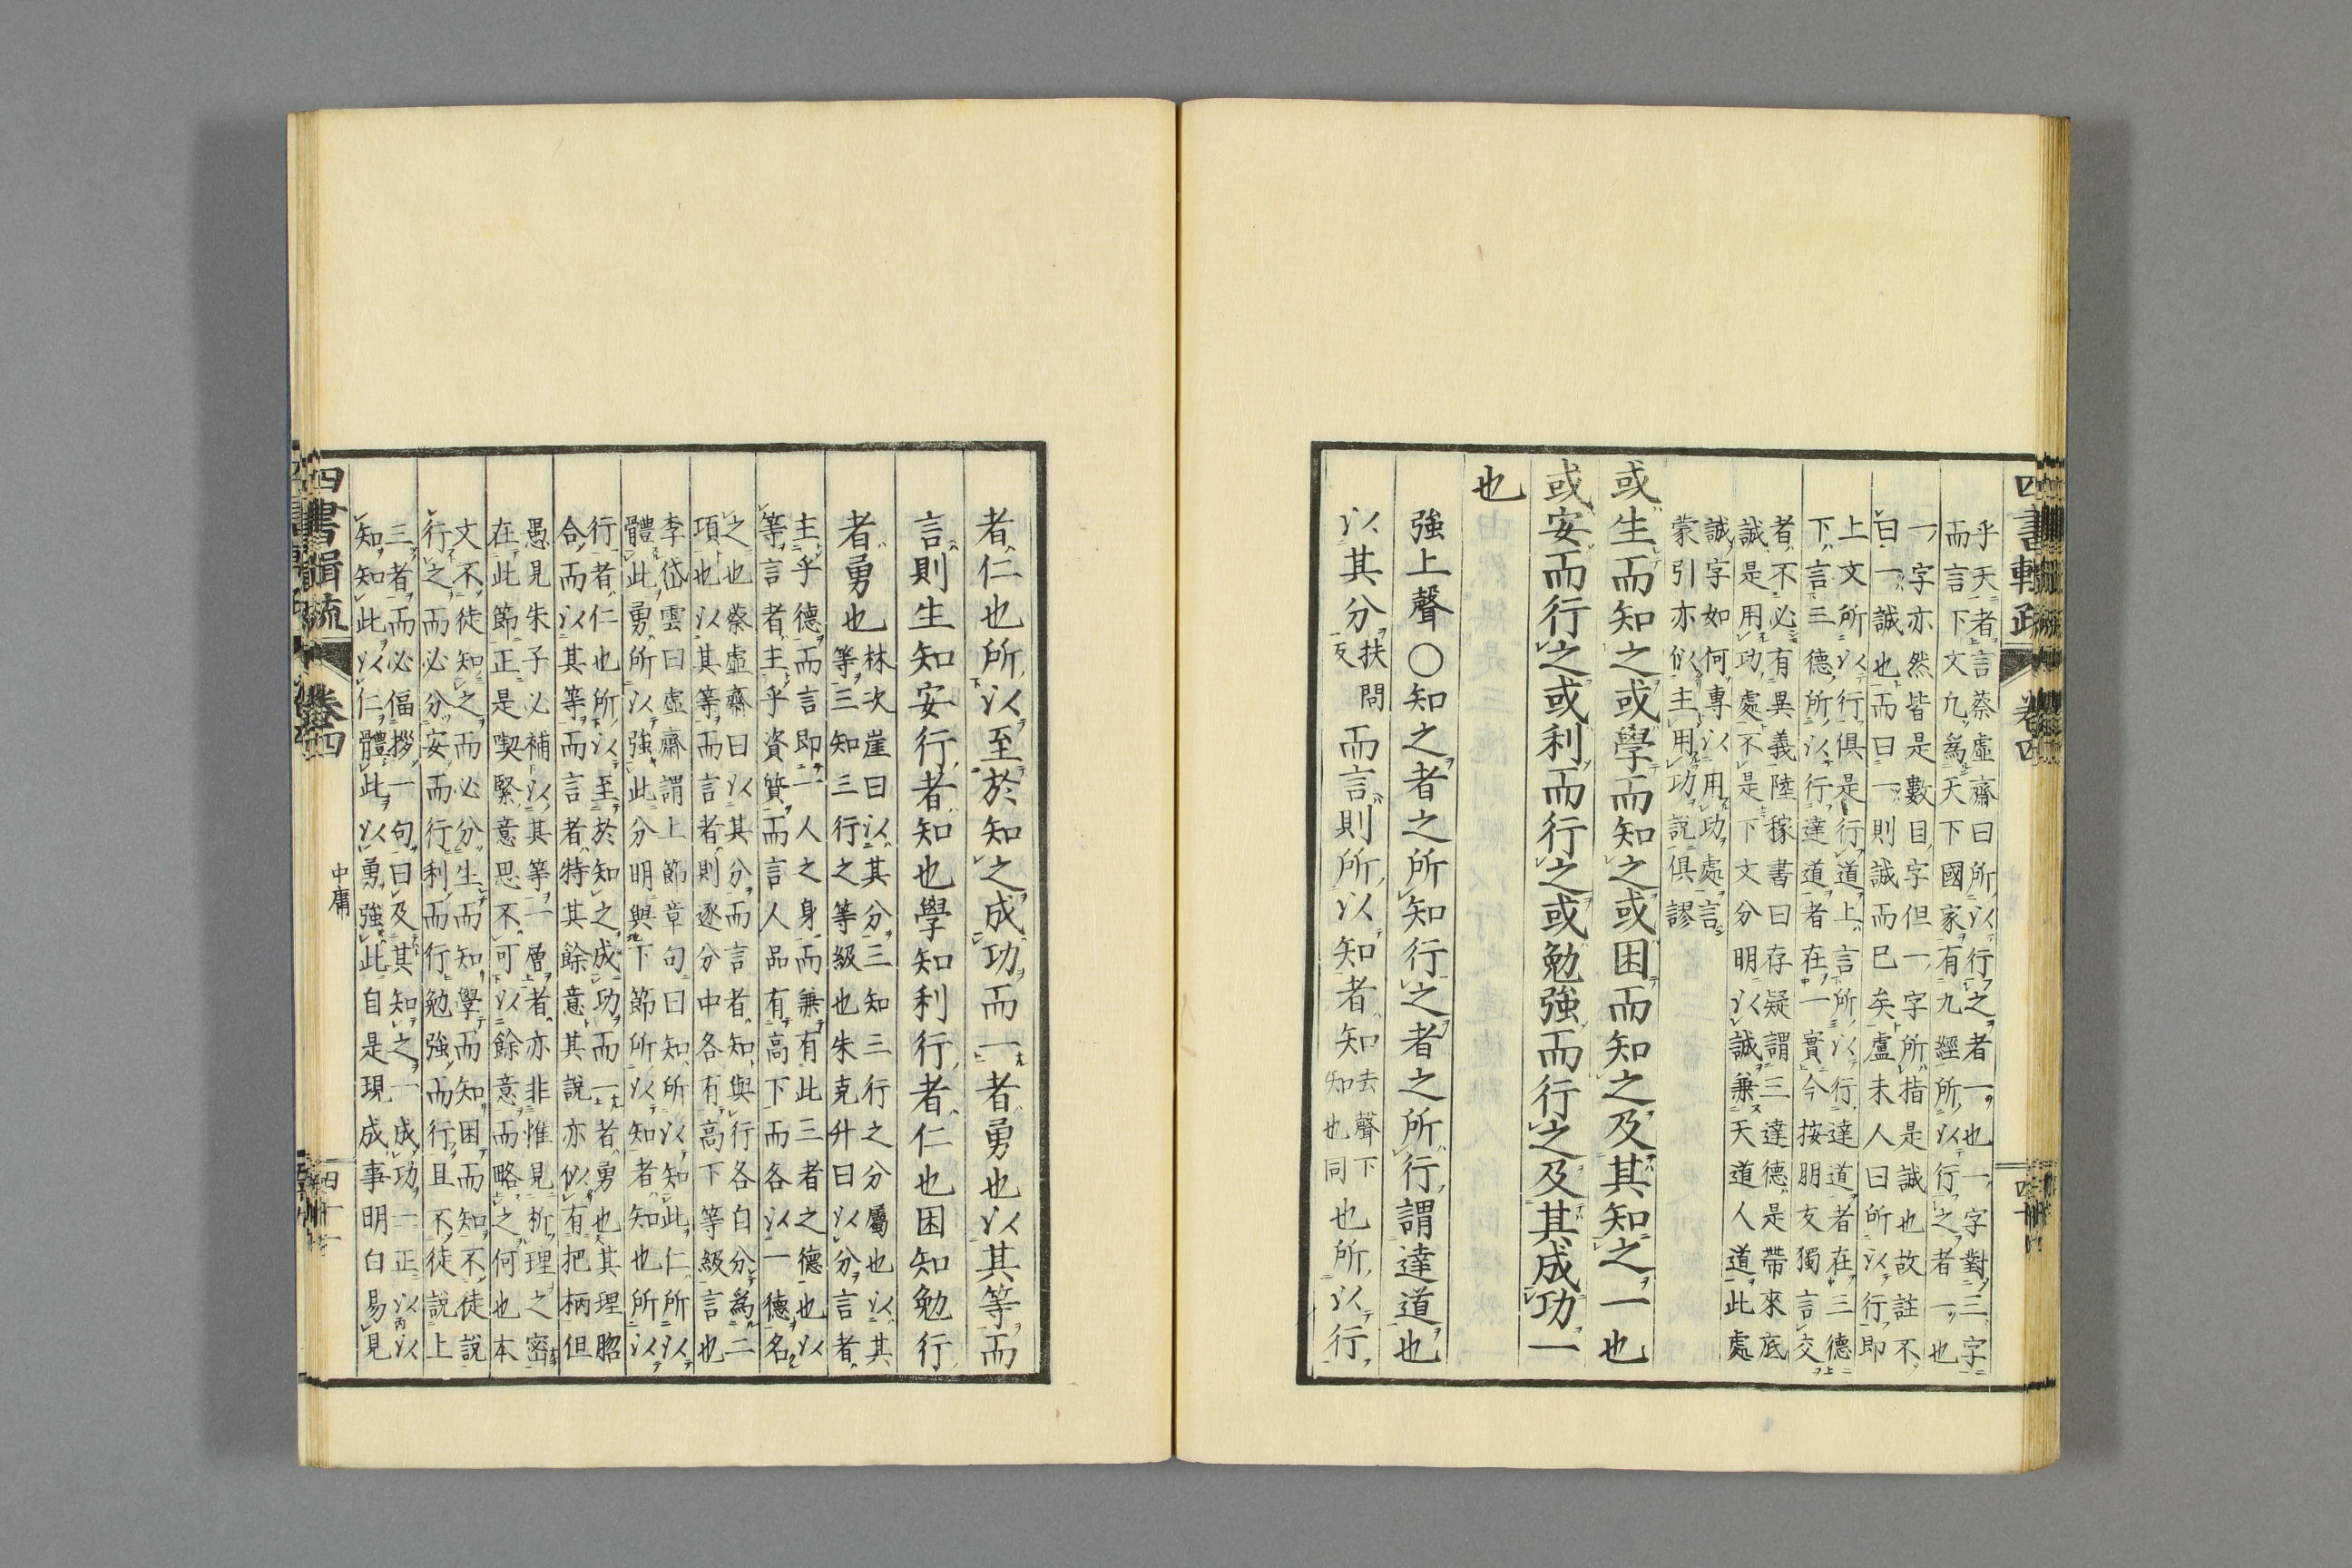 四書輯疏
卷四
四十
乎天者言蔡虛齋曰所以行之者一也一字對三字
而言下文凡為天下國家有九經所以行之者一也
一字亦然皆是數目字但一字所指是誠也故註不
曰一誠也而曰一則誠而已矣盧未人曰所以行即
上文所以行俱是行道上言所以行達道者在三德
下言三德所以行達道者在一實今按朋友獨言交
者不必有異義陸稼書曰存疑謂三達德是帶來底
誠是用功處不是下文分明以誠兼天道人道此處
誠字如何專以用功處言
蒙引亦似主用功說俱謬
或生而知之或學而知之或困而知之及其知之一也
或安而行之或利而行之或勉強而行之及其成功一
也
強上聲○知之者之所知行之者之所行謂達道也
以其分扶問反而言則所以知者知去聲下知也同也所以行
者仁也所以至於知之成功而一者勇也以其等而
言則生知安行者知也學知利行者仁也困知勉行
者勇也林次崖曰以其分三知三行之分屬也以其
等三知三行之等級也朱克升曰以分言者
主乎德而言即一人之身而兼有此三者之德也以
等言者主乎資質而言人品有高下而各以一德名
之也蔡虛齋曰以其分而言者知與行各自分為二
項也以其等而言者則逐分中各有高下等級言也
李岱雲曰虛齋謂上節章句曰知所以知此仁所以
體此勇所以強此分明與下節所以知者知也所以
行者仁也所以至於知之成功而一者勇也其理脗
合而以其等而言者特其餘意其說亦似有把柄但
愚見朱子必補以其等一層者亦非惟見析理之密
在此節正是喫緊意思不可以餘意而略之何也本
文不徒知之而必分生而知學而知困而知不徒說
行之而必分安而行利而行勉強而行且不徒說上
三者而必偪拶一句曰及其知之一成功一正以以
知知此以仁體此以勇強此自是現成事明白易見
四書輯疏
卷四
中庸
四十一